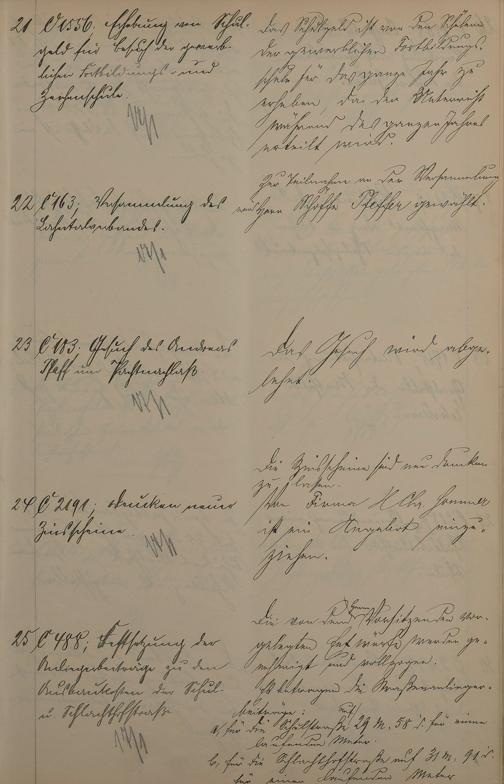 21 C 1556. Erhebung von Schul-
geld für Besuch der gewerb-
lichen Fortbildungs- und
Zeichenschule.
Das Schulgeld ist von den Schülern
der gewerblichen Fortbildungs-
schule für das ganze Jahr zu
erheben, da der Unterricht
während des ganzen Jahres
erteilt wird.
22 C 163; Versammlung des
Lahntalverbandes.
Zur Teilnahme an der Versammlung
wird Herr Schöffe Pfeffer gewählt.
23 C 183; Gesuch des Andreas
Pfaff um Pachtnachlaß
Das Gesuch wird abge-
lehnt.
24 C 2191; Drucken neuer
Zinsscheine.
Die Zinsscheine sind neu drucken
zu lassen.
Von Firma
ist ein Angebot einzu-
ziehen.
25 C 488; Festsetzung der
Anliegerbeiträge zu den
Ausbaukosten der Schul-
u. Schlachthofstraße
Die von dem Herrn Vorsitzenden vor-
gelegten Entwürfe werden ge-
nehmigt und vollzogen.
Es betragen die Straßenanlieger-
beiträge:
a, für die Schulstraße auf 29 M. 58 d. für einen
laufenden Meter
b, für die Schlachthofstraße auf 31 M. 91 d.
für einen laufenden Meter